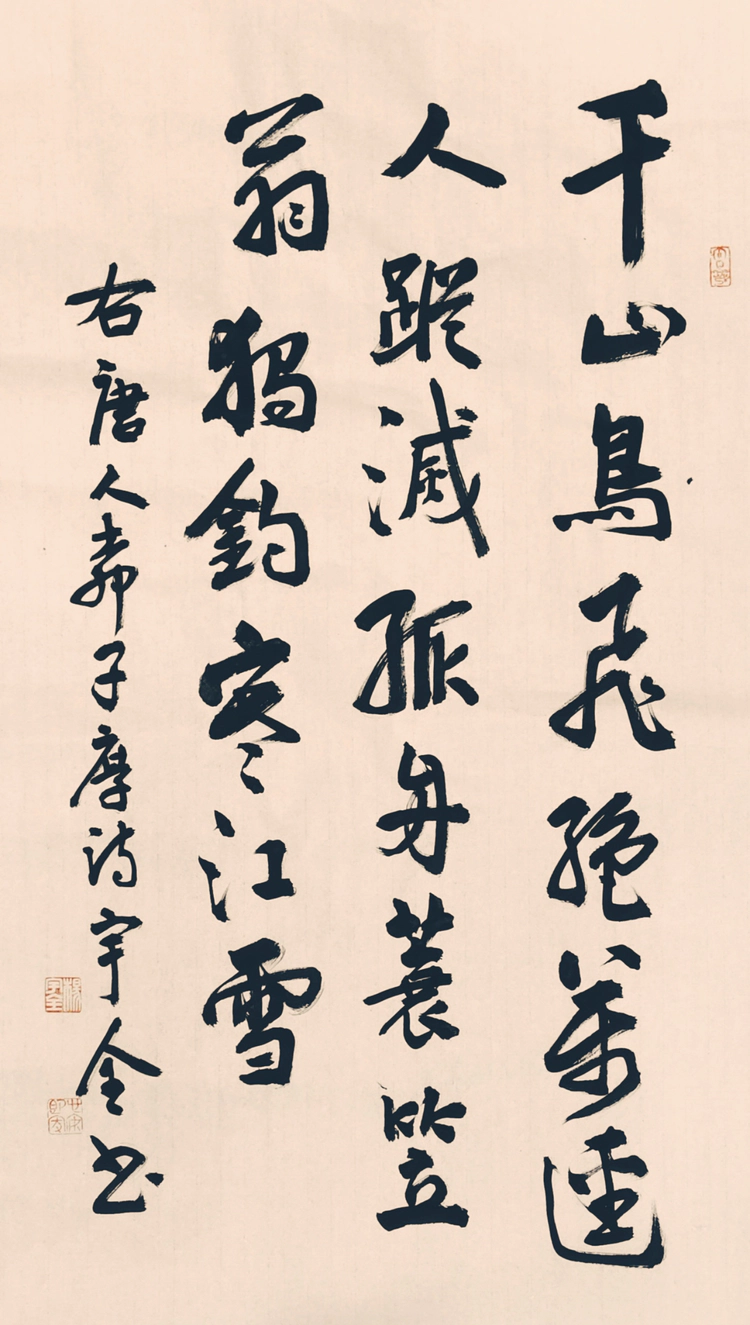 千山鳥飛絕萬逕
人蹤滅孤舟蓑笠
翁獨釣寒江雪
右唐人柳子厚詩宇全書